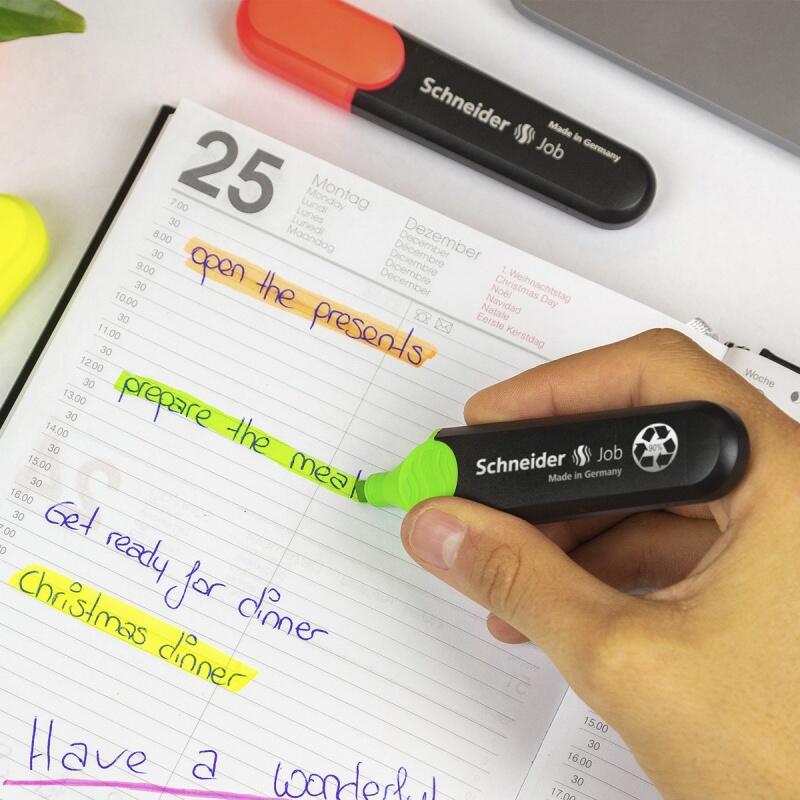 Schneider Job
Made in Germany
25
Montag
Monday
Lundi
Lunes
Lunedì
Maandag
Dezember
December
Décembre
Diciembre
Dicembre
December
1. Weihnachtstag
Christmas Day
Noël
Navidad
Natale
Eerste Kerstdag
7.00
30
8.00
30
9.00
30
10.00
30
11.00
30
12.00
30
13.00
30
14.00
30
15.00
30
16.00
30
30
open the presents
prepare the meal
Get ready for dinner
Christmas dinner
Have a wonderful
Schneider Job
Made in Germany
90%
Woche
15.00
30
16.00
30
17.00